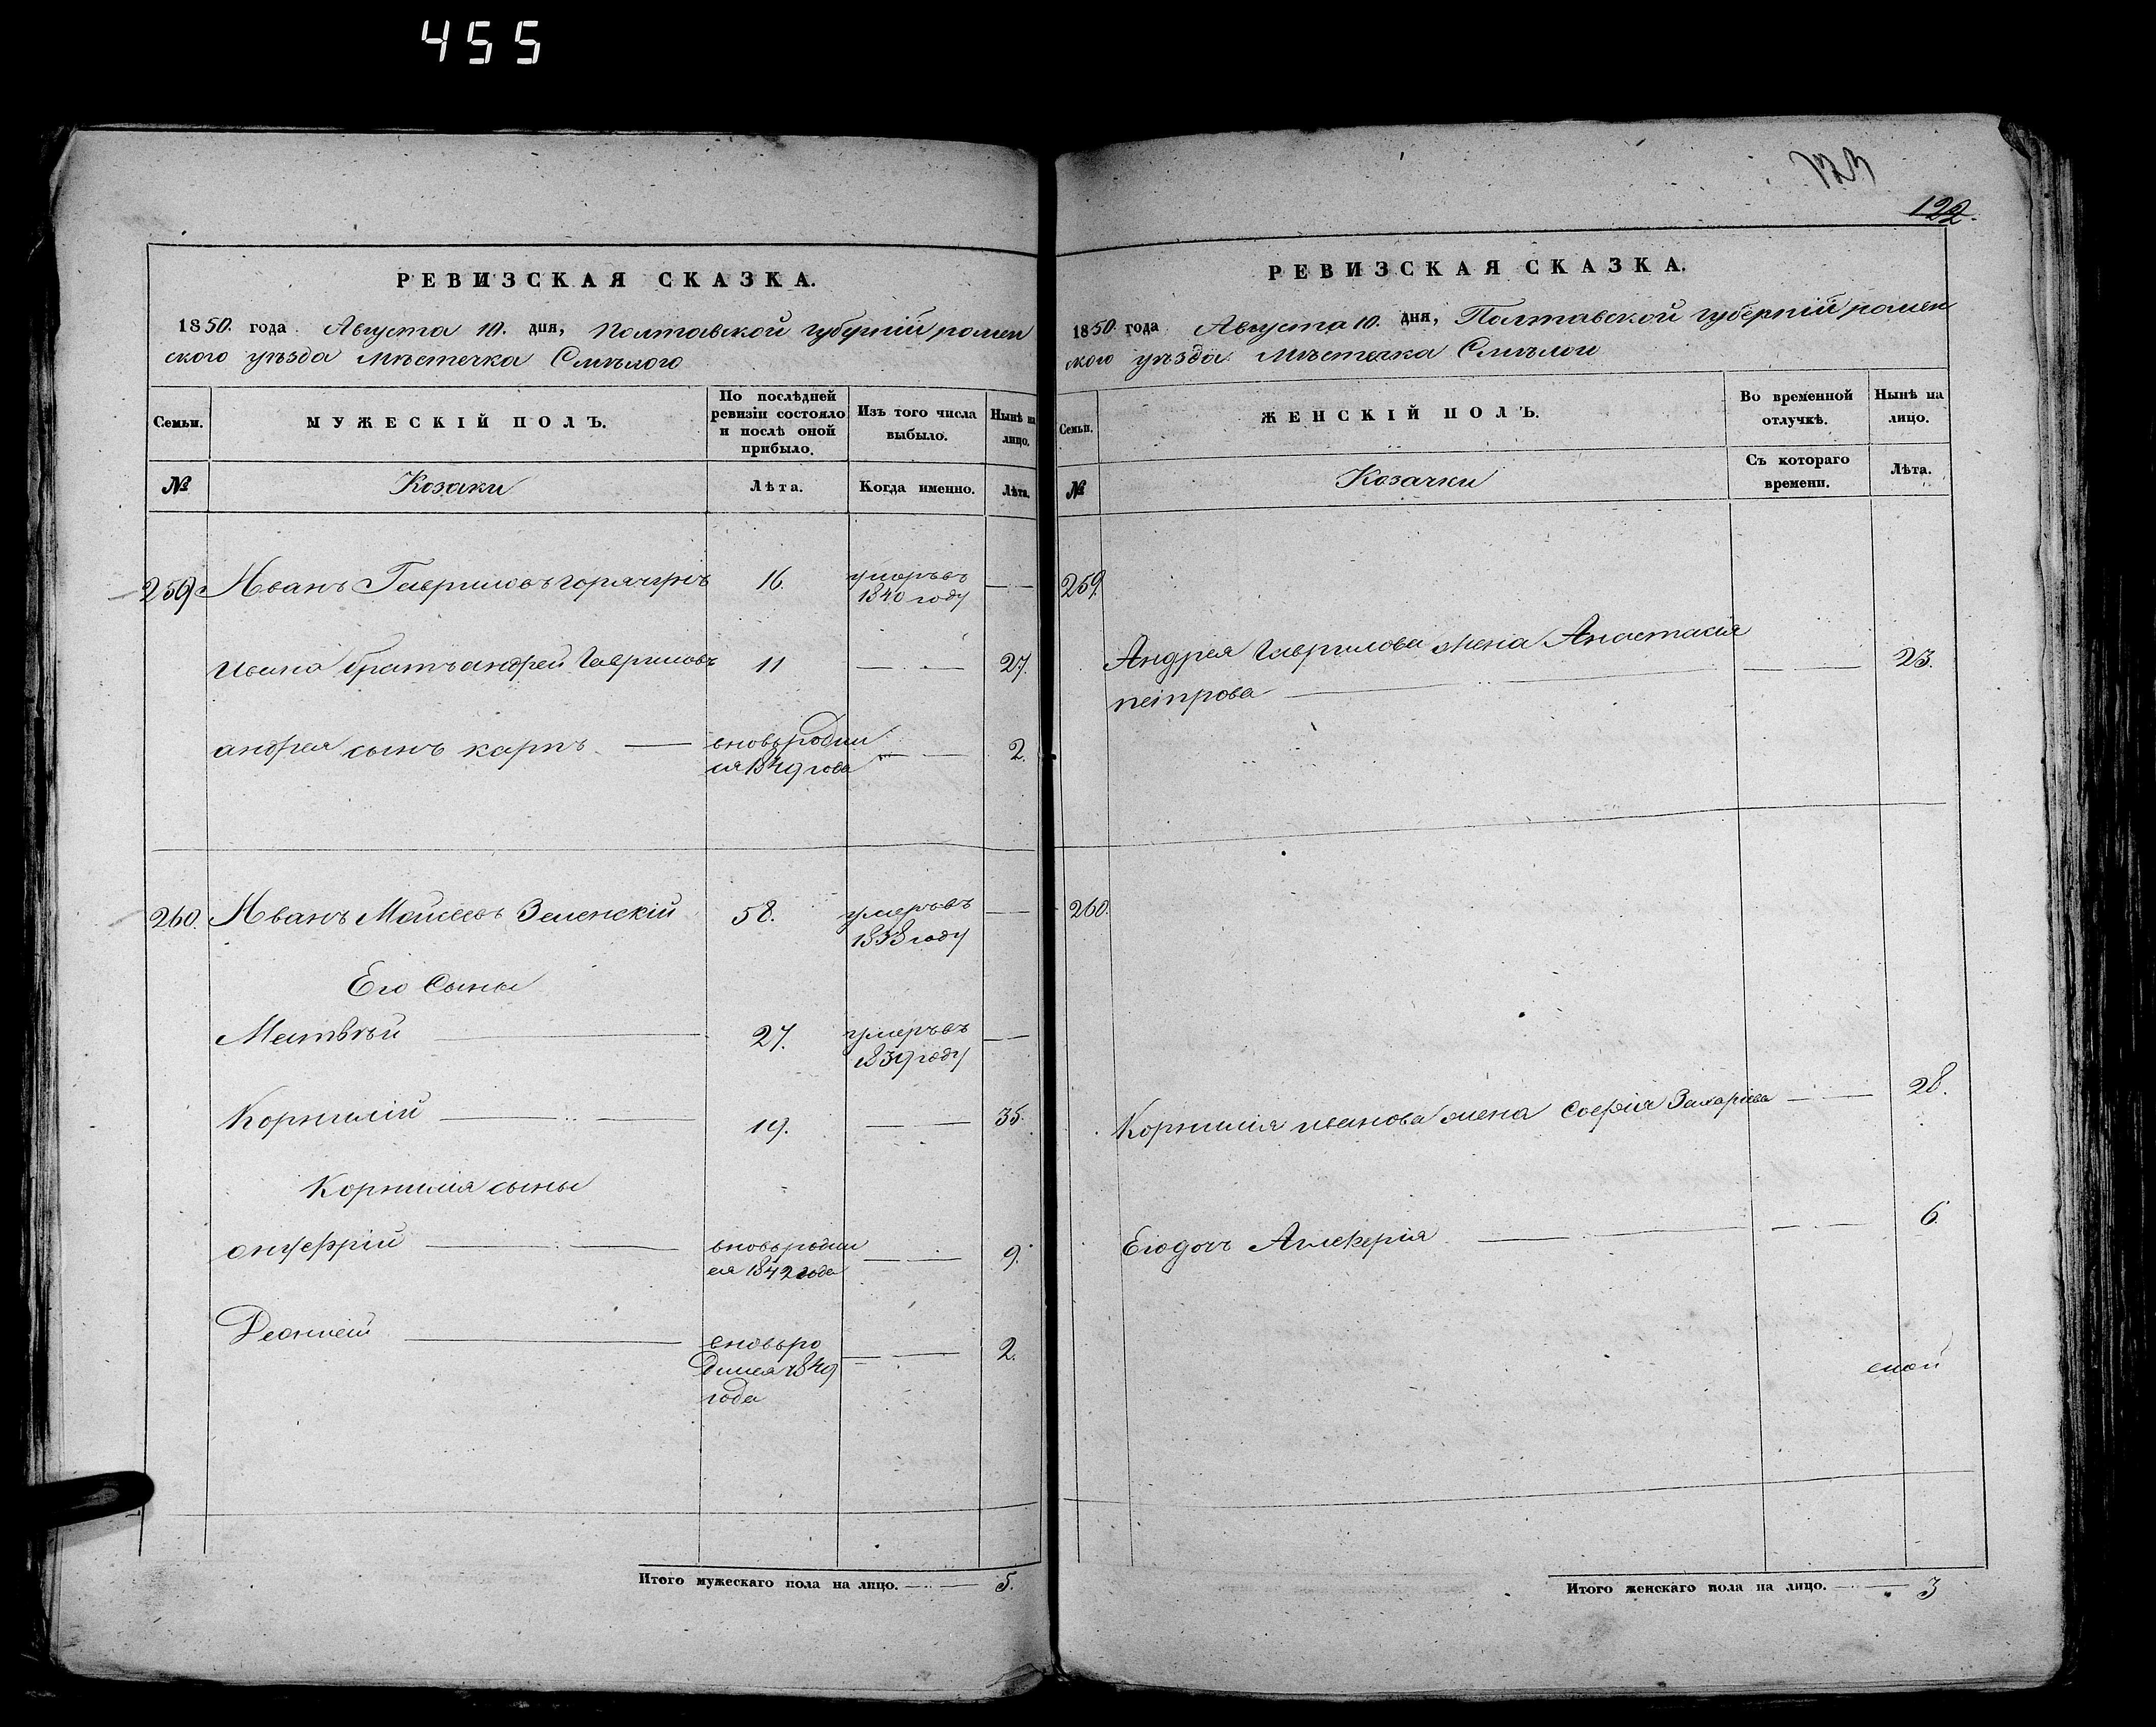 455
РЕВИЗСКАЯ СКАЗКА.
1850. года Августа 10. дня, Полтавской губерніи ромен
ского уѣзда Мѣстечка Смѣлого
Семьи.
МУЖЕСКІЙ ПОЛЪ.
По послѣдней
ревизіи состояло
и послѣ оной
прибыло.
Изъ того числа
выбыло.
Нынѣ на
лицо.
№
Козаки
Лѣта.
Когда именно.
Лѣта.
259 Иванъ Гавриловъ 16. умеръ въ
1840 году
Ивана братъ андрей Гавриловъ 11 27.
андрея сынъ карпъ вновь родил
ся 1849 года 2.
260. Иванъ Моисеевъ Зеленскій 58. умеръ въ
1838 году
Его Сыны
Матвѣй 27. умеръ въ
1839 году
Корнилій 19. 35.
Корнилія сыны
онуфрій вновь родил
ся 1842 года 9.
вновь ро
дился 1849
года 2.
Итого мужескаго пола на лицо. 5.
123
122.
РЕВИЗСКАЯ СКАЗКА.
1850 года Августа 10. дня, Полтавской губерніи ромен
ского уѣзда Мѣстечка Смѣлои
Семьи.
ЖЕНСКІЙ ПОЛЪ.
Во временной
отлучкѣ.
Нынѣ на
лицо.
№
Козачки
Съ котораго
времени.
Лѣта.
259.
Андрея Гаврилова жена Анастасия
петрова 23.
260.
Корнилія иванова жена Софія Захаріева 28.
Его дочь Гликерія 6.
Итого женскаго пола на лицо. 3